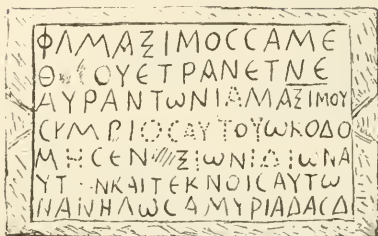 ΦΛΜΑΞΙΜΟCCΑΜΕ
Θ ΟΥΕΤΡΑΝΕΤΝΕ
ΑΥΡΑΝΤωΝΙΑΜΑΞΙΜΟΥ
CΥΜΒΙΟCΑΥΤΟΥωΚΟΔΟ
ΜΗCΕΝ ΞΙωΝΙΔΙωΝΑ
ΥΤ ΝΚΑΙΤΕΚΝΟΙCΑΥΤω
ΝΑΙΝΗΛωCΑΜΥΡΙΑΔΑCΔ